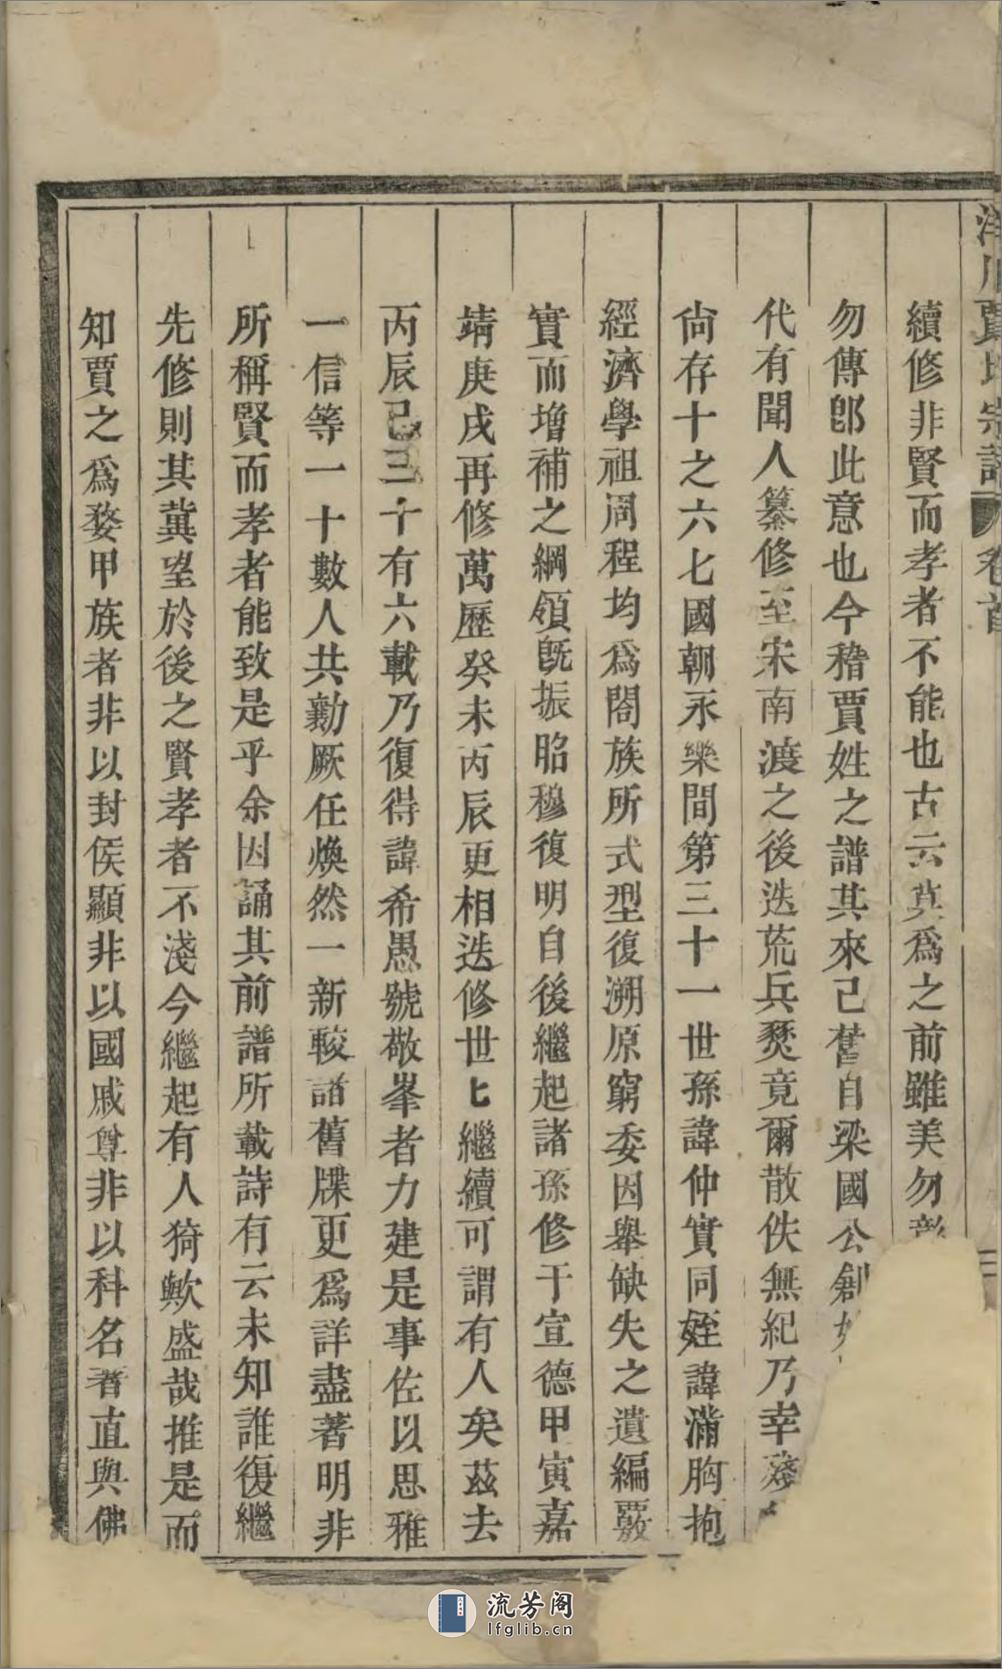 賈氏宗譜 卷首
續修非賢而孝者不能也古云莫爲之前雖美勿彰
勿傳卽此意也今稽賈姓之譜其來已舊自梁國公創始
代有聞人纂修至宋南渡之後迭荒兵燹竟爾散佚無紀乃幸殘
尙存十之六七國朝永樂間第三十一世孫諱仲實同姪諱滿胸抱
經濟學祖周程均爲閤族所式型復溯原窮委因舉缺失之遺編覈
實而增補之綱領旣振昭穆復明自後繼起諸孫修于宣德甲寅嘉
靖庚戌再修萬歷癸未丙辰更相迭修世七繼續可謂有人矣茲去
丙辰已三十有六載乃復得諱希愚號敬峯者力建是事佐以思雅
一信等一十數人共勷厥任煥然一新較諸舊牒更爲詳盡著明非
所稱賢而孝者能致是乎余因誦其前譜所載詩有云未知誰復繼
先修則其冀望於後之賢孝者不淺今繼起有人猗歟盛哉推是而
知賈之爲婺甲族者非以封侯顯非以國戚尊非以科名著直與佛
流芳阁
lfglib.cn